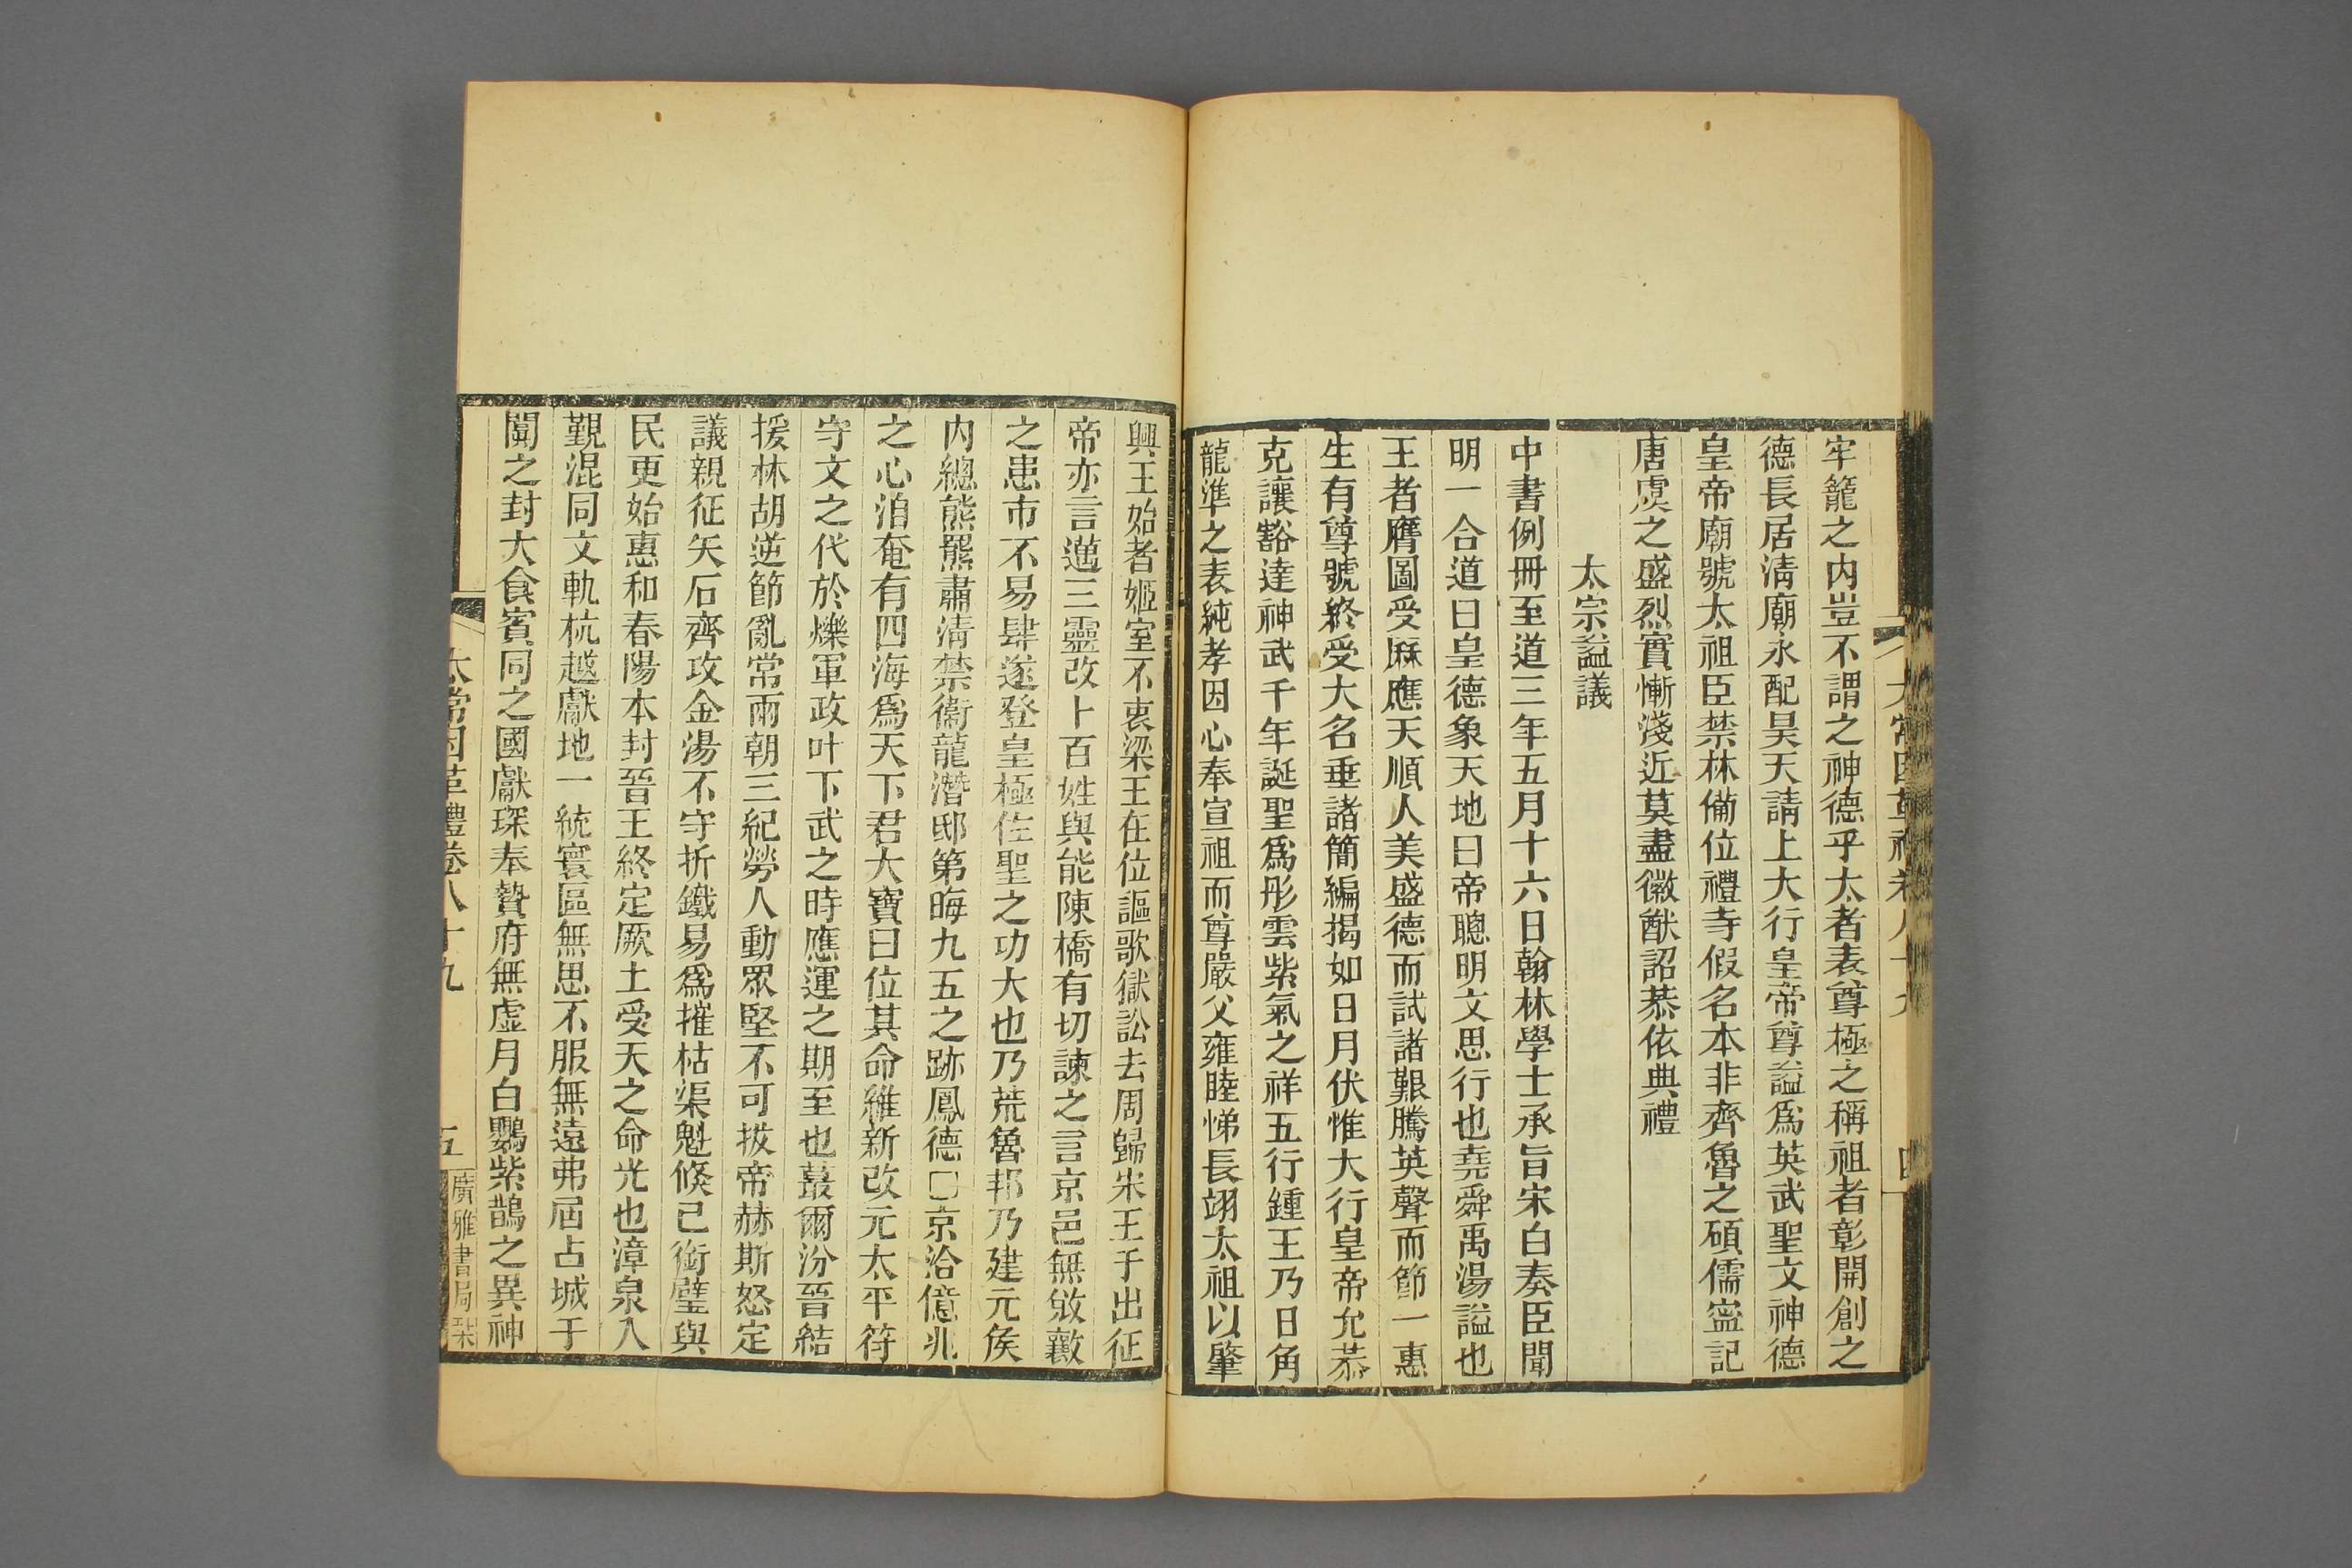 牢籠之内豈不謂之神德乎太者表尊極之稱祖者彰開創之
德長居淸廟永配昊天請上大行皇帝尊諡爲英武聖文神德
皇帝廟號太祖臣禁林備位禮寺假名本非齊魯之碩儒寍記
唐虞之盛烈實慚淺近莫盡徽猷詔恭依典禮
太宗諡議
中書例冊至道三年五月十六日翰林學士承旨宋白奏臣聞
明一合道曰皇德象天地曰帝聰明文思行也堯舜禹湯諡也
王者膺圖受厤應天順人美盛德而試諸艱騰英聲而節一惠
生有尊號終受大名垂諸簡編揭如日月伏惟大行皇帝允恭
克讓豁達神武千年誕聖爲彤雲紫氣之祥五行鍾王乃日角
龍準之表純孝因心奉宣祖而尊嚴父雍睦悌長翊太祖以肇
興王始者姬室不衷梁王在位謳歌獄訟去周歸宋王于出征
帝亦言邁三靈改卜百姓與能陳橋有切諫之言京邑無攽藪
之患市不易肆遂登皇極佐聖之功大也乃荒魯邦乃建元侯
内總熊羆肅淸禁衞龍潛邸第晦九五之跡鳳德□京洽億兆
之心洎奄有四海爲天下君大寶曰位其命維新改元太平符
守文之代於爍軍政叶下武之時應運之期至也蕞爾汾晉結
援林胡逆節亂常兩朝三紀勞人動眾堅不可拔帝赫斯怒定
議親征矢石齊攻金湯不守折鐵易爲摧枯渠魁倏已銜璧與
民更始惠和春陽本封晉王終定厥土受天之命光也漳泉入
覲混同文軌杭越獻地一統寰區無思不服無遠弗屆占城于
闐之封大食賓同之國獻琛奉贄府無虛月白鸚紫鵲之異神
太常因革禮卷八十九
五
廣雅書局栞